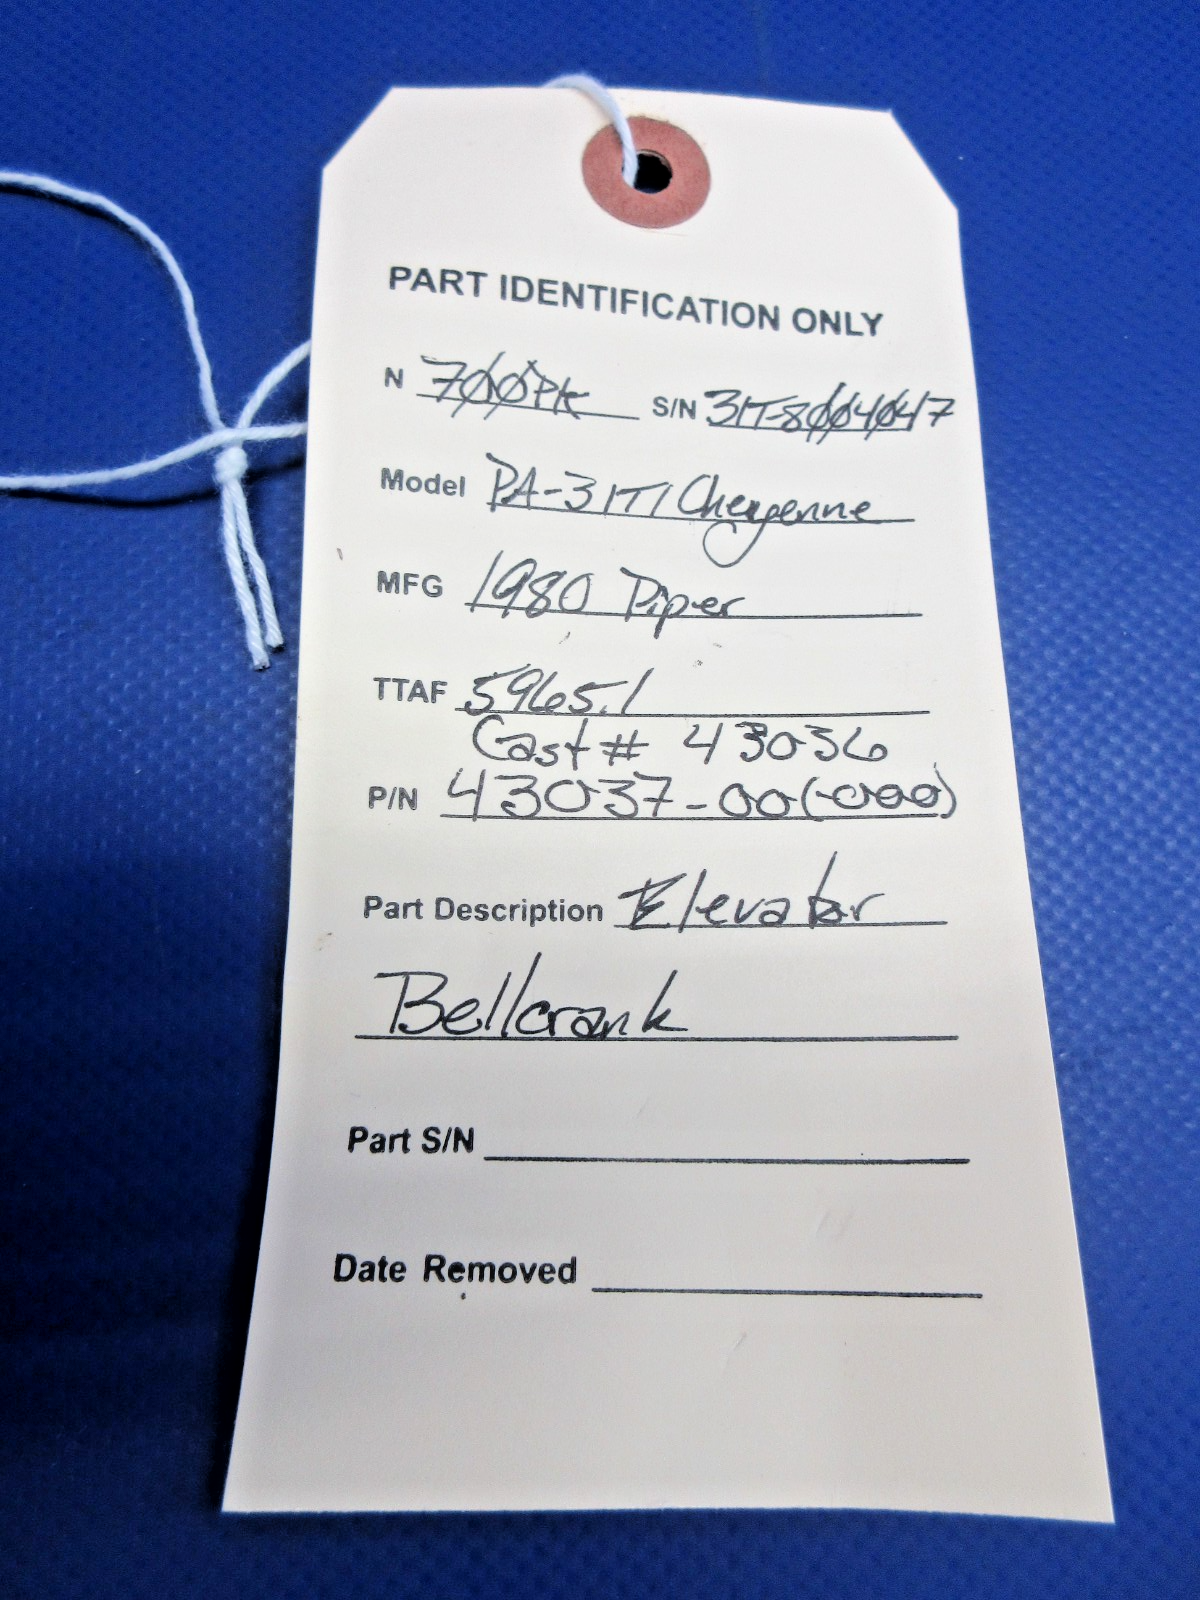 PART IDENTIFICATION ONLY
N 700PK S/N 31T-8004047
Model PA-31T1 Cheyenne
MFG 1980 Piper
TTAF 5965.1
Cast # 43036
P/N 43037-00(-000)
Part Description Elevator
Bellcrank
Part S/N
Date Removed